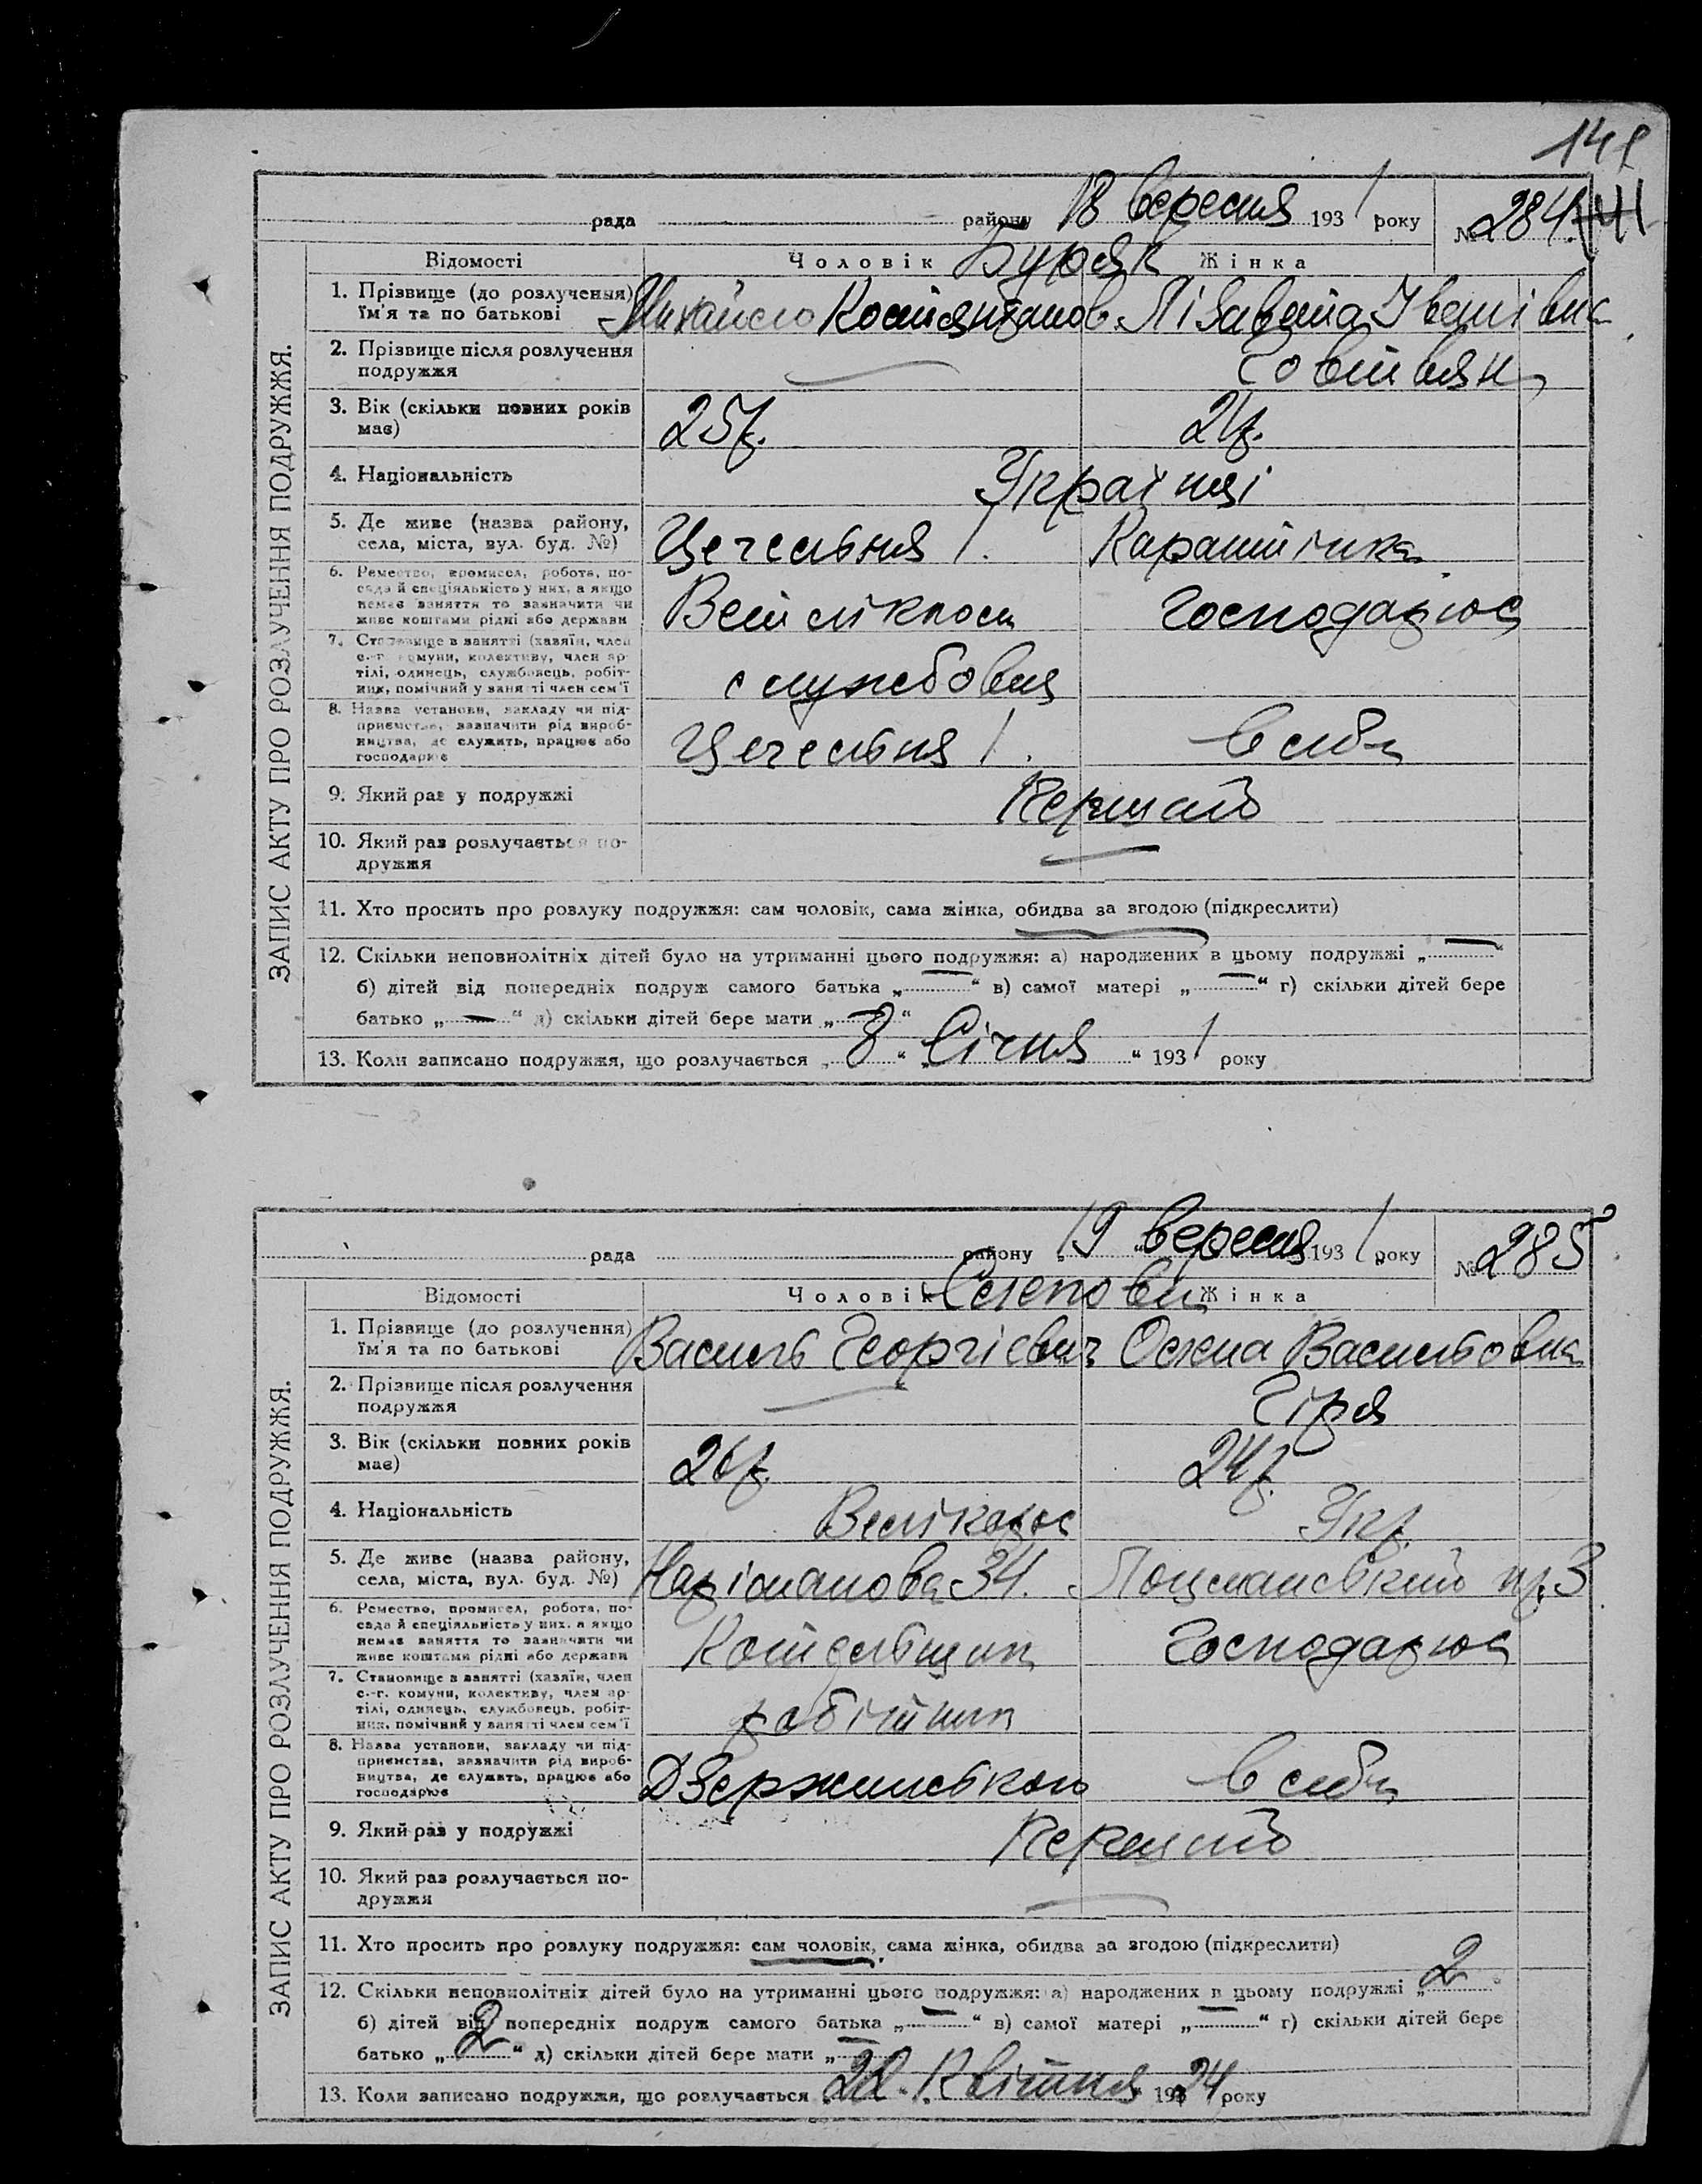 141
рада району 18 вересня 1931 року № 284.
Відомості Чоловік Буряк Жінка
1. Прізвище (до розлучення) ім'я та по батькові Михайло Костянтинов. Лізавета Іванівна
2. Прізвище після розлучення подружжя
3. Вік (скільки повних років має) 25р. 21р.
4. Національність Українці
5. Де живе (назва району, села, міста, вул. буд. №) Цегельня 1.
6. Ремество, промисел, робота, посада й спеціяльність у них, а якщо немає заняття то зазначити чи живе коштами рідні або держави Господарює
7. Становище в занятті (хазяїн, член с.-г. комуни, колективу, член артілі, одинець, службовець, робітник, помічний у занятті член сем'ї службовец
8. Назва установи, закладу чи підприємства, зазначити рід виробництва, де служить, працює або господарює Цегельня 1. в себе
9. Який раз у подружжі Перший
10. Який раз розлучається подружжя
11. Хто просить про розлуку подружжя: сам чоловік, сама жінка, обидва за згодою (підкреслити)
12. Скільки неповнолітніх дітей було на утриманні цього подружжя: а) народжених в цьому подружжі „—“
б) дітей від попередніх подруж самого батька „—“ в) самої матері „—“ г) скільки дітей бере
батько „—“ д) скільки дітей бере мати „—“
13. Коли записано подружжя, що розлучається „8“ „Січня“ 1931 року
ЗАПИС АКТУ ПРО РОЗЛУЧЕННЯ ПОДРУЖЖЯ.
рада району 19 вересня 1931 року № 285
Відомості Чоловік Жінка
1. Прізвище (до розлучення) ім'я та по батькові Василь Георгієвич Олена Васильовна
2. Прізвище після розлучення подружжя Гіря
3. Вік (скільки повних років має) 26р. 24р.
4. Національність Велікорос Укр.
5. Де живе (назва району, села, міста, вул. буд. №) Наріманова 34. пр. 3
6. Ремество, промисел, робота, посада й спеціяльність у них, а якщо немає заняття то зазначити чи живе коштами рідні або держави Котельщик Господарює
7. Становище в занятті (хазяїн, член с.-г. комуни, колективу, член артілі, одинець, службовець, робітник, помічний у занятті член сем'ї робітник
8. Назва установи, закладу чи підприємства, зазначити рід виробництва, де служить, працює або господарює Дзержинського в себе
9. Який раз у подружжі Перший
10. Який раз розлучається подружжя
11. Хто просить про розлуку подружжя: сам чоловік, сама жінка, обидва за згодою (підкреслити)
12. Скільки неповнолітніх дітей було на утриманні цього подружжя: а) народжених в цьому подружжі „2“
б) дітей від попередніх подруж самого батька „—“ в) самої матері „—“ г) скільки дітей бере
батько „2“ д) скільки дітей бере мати „—“
13. Коли записано подружжя, що розлучається 22. Квітня 1924 року
ЗАПИС АКТУ ПРО РОЗЛУЧЕННЯ ПОДРУЖЖЯ.